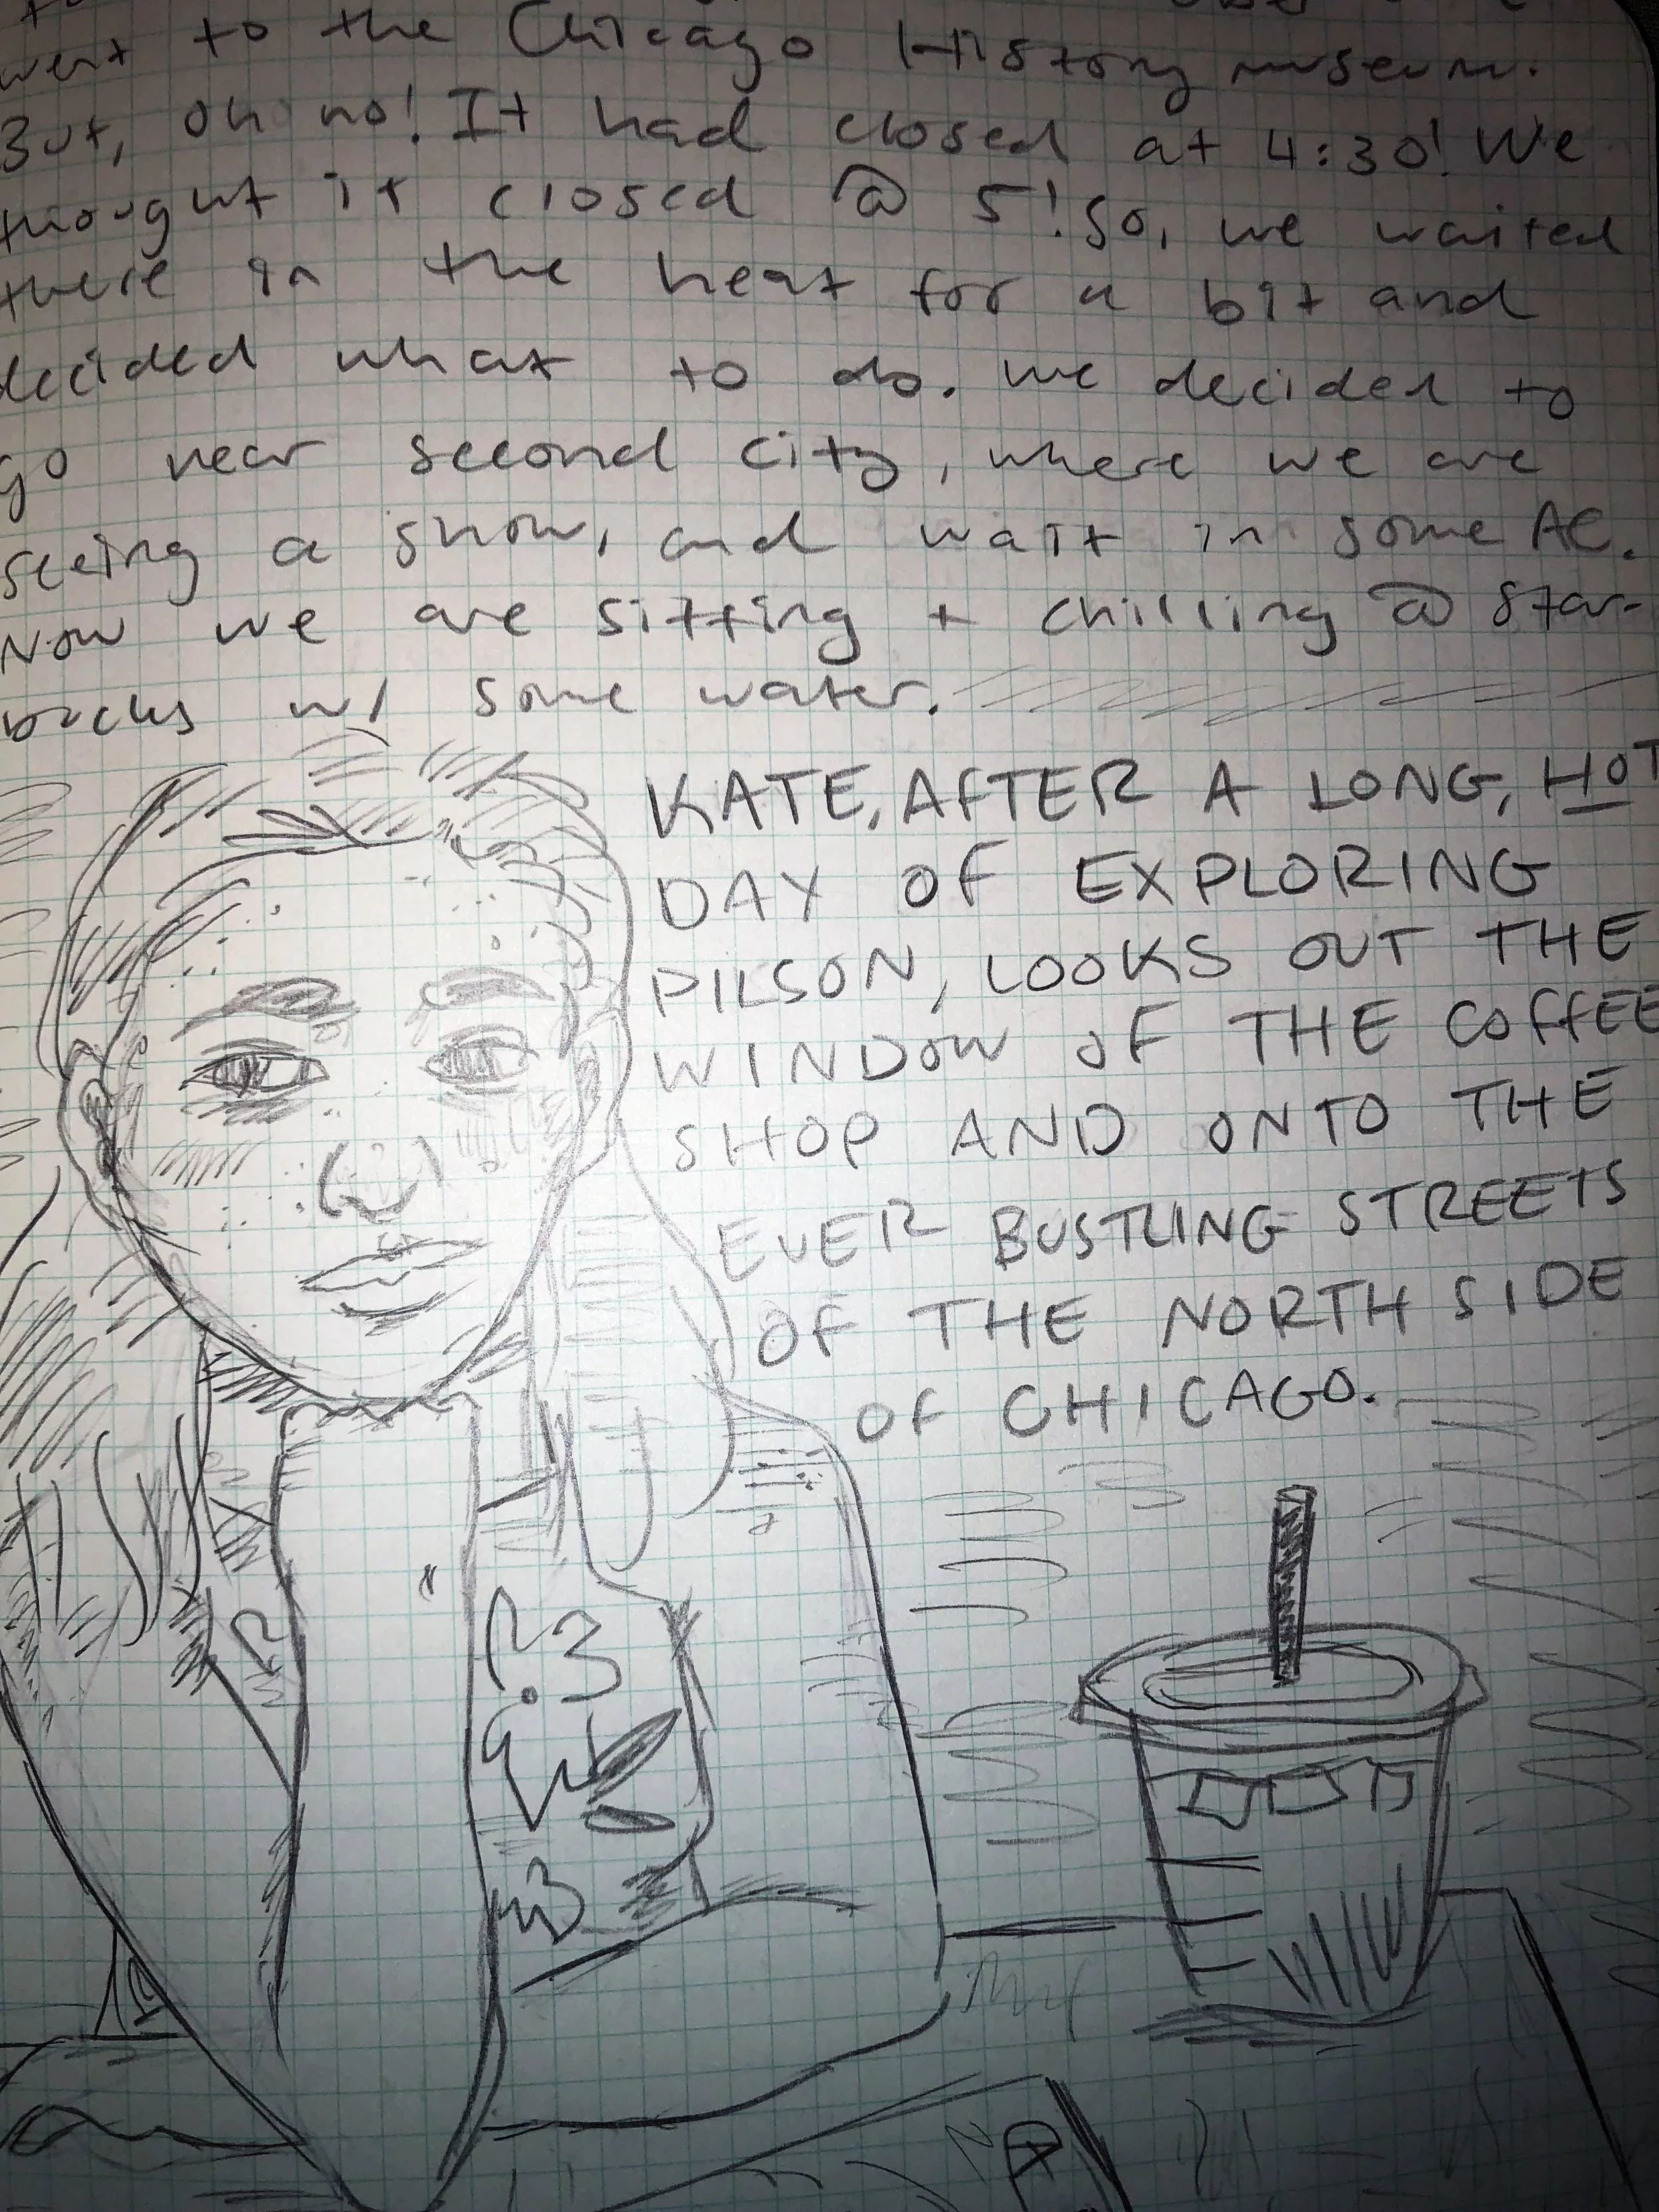 went to the Chicago History museum.
But, oh no! It had closed at 4:30! We
thought it closed @ 5! So, we waited
there in the heat for a bit and
decided what to do. We decided to
go near second city, where we are
seeing a show, and wait in some AC.
Now we are sitting + chilling @ Star-
bucks w/ some water.
KATE, AFTER A LONG, HOT
DAY OF EXPLORING
PILSON, LOOKS OUT THE
WINDOW OF THE COFFEE
SHOP AND ONTO THE
EVER BUSTLING STREETS
OF THE NORTH SIDE
OF CHICAGO.